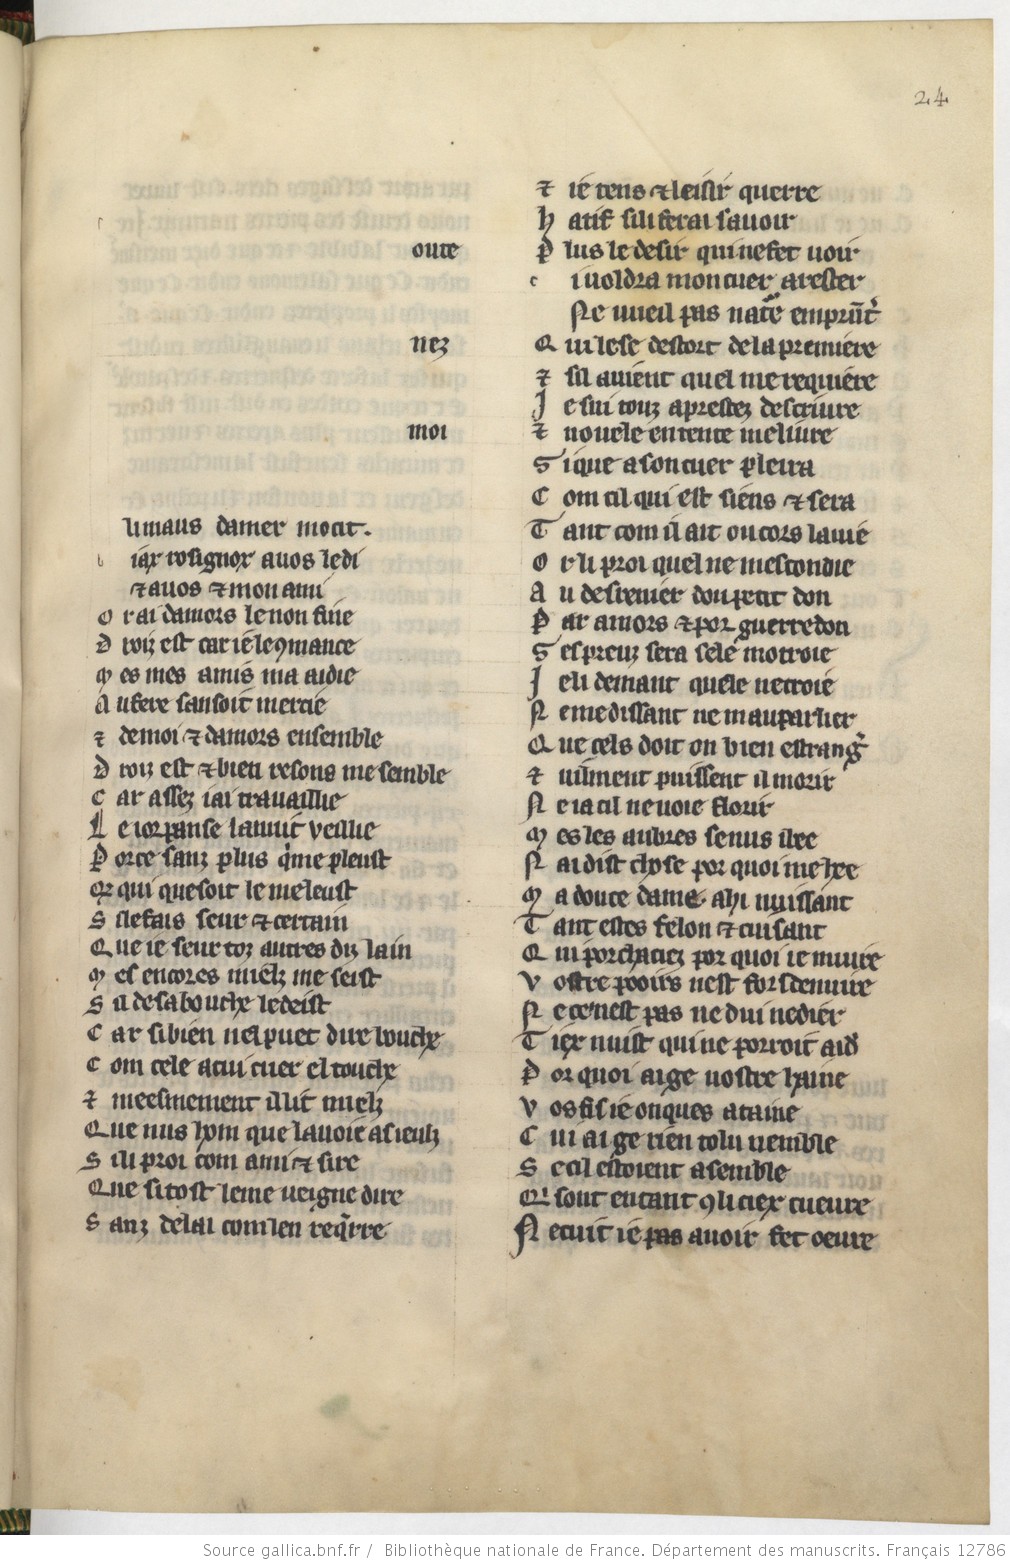 24
oute
nez
moi
li maus damer mocit.
iax rosignox a vos le di
⁊ a vos ⁊ mon ami
O r ai damors le non fine
D roiz est car ie le ꝯmance
M es mes amis ma aidie
A ufere san soit mercie
⁊ de moi ⁊ damors ensemble
D roiz est ⁊ bien resons me semble
C ar assez iai travaillie
L e ior panse la nuit veillie
P or ce sanz plus qime pleust
Qr qui que soit le meleust
S il le fais seur ⁊ certain
Q ue ie seur toz autres diz lain
M es encores mielz me seist
S il de sa bouche le deist
C ar si bien nel puet dire bouche
C om cele a cui cuer el touche
⁊ meesmement il lit mielz
Q ue nus hom que la voie as ieulz
S i li proi com ami ⁊ sire
Q ue si tost le me veigne dire
S anz delai com len reqrre
⁊ ie tens ⁊ leisir querre
H atif si li ferai savoir
P lus le desir qui ne fet voir
c i voldra mon cuer arester
Ne vueil pas nate emprunt
Q ui le se destort de la premiere
⁊ sil avient quel me requiere
J e sui touz aprestez descrivre
⁊ novele entente me livre
S i que a son cuer pleira
C om cil qui est siens ⁊ sera
T ant com il ait ou cors la vie
O r li proi quel ne mescondie
A u desrenier dou petit don
P ar amors ⁊ por guerredon
S es preuz sera sele motroie
J e li demant quele ne croie
N e medissant ne mauparlier
Q ue cels doit on bien estrang
⁊ vilment puissent il morir
N e ia cil ne voie florir
M es les aubres se nus i bee
N ai dist chose por quoi me hee
M a douce dame ahi nuissant
T ant estes felon ⁊ cuisant
Q ui porchaciez por quoi ie muire
V ostre pooirs nest fors de nuire
N e ce nest pas ne dui ne dier
T iex nuist qui ne porroit aid
P or quoi ai ge vostre haine
V os fis ie onques ataine
C ui ai ge rien tolu nemble
S e cil estoient asemble
Qi sont encant ꝯ li ciex cuevre
N e cuit ie pas avoir fet oevre
Source gallica.bnf.fr / Bibliothèque nationale de France. Département des manuscrits. Français 12786